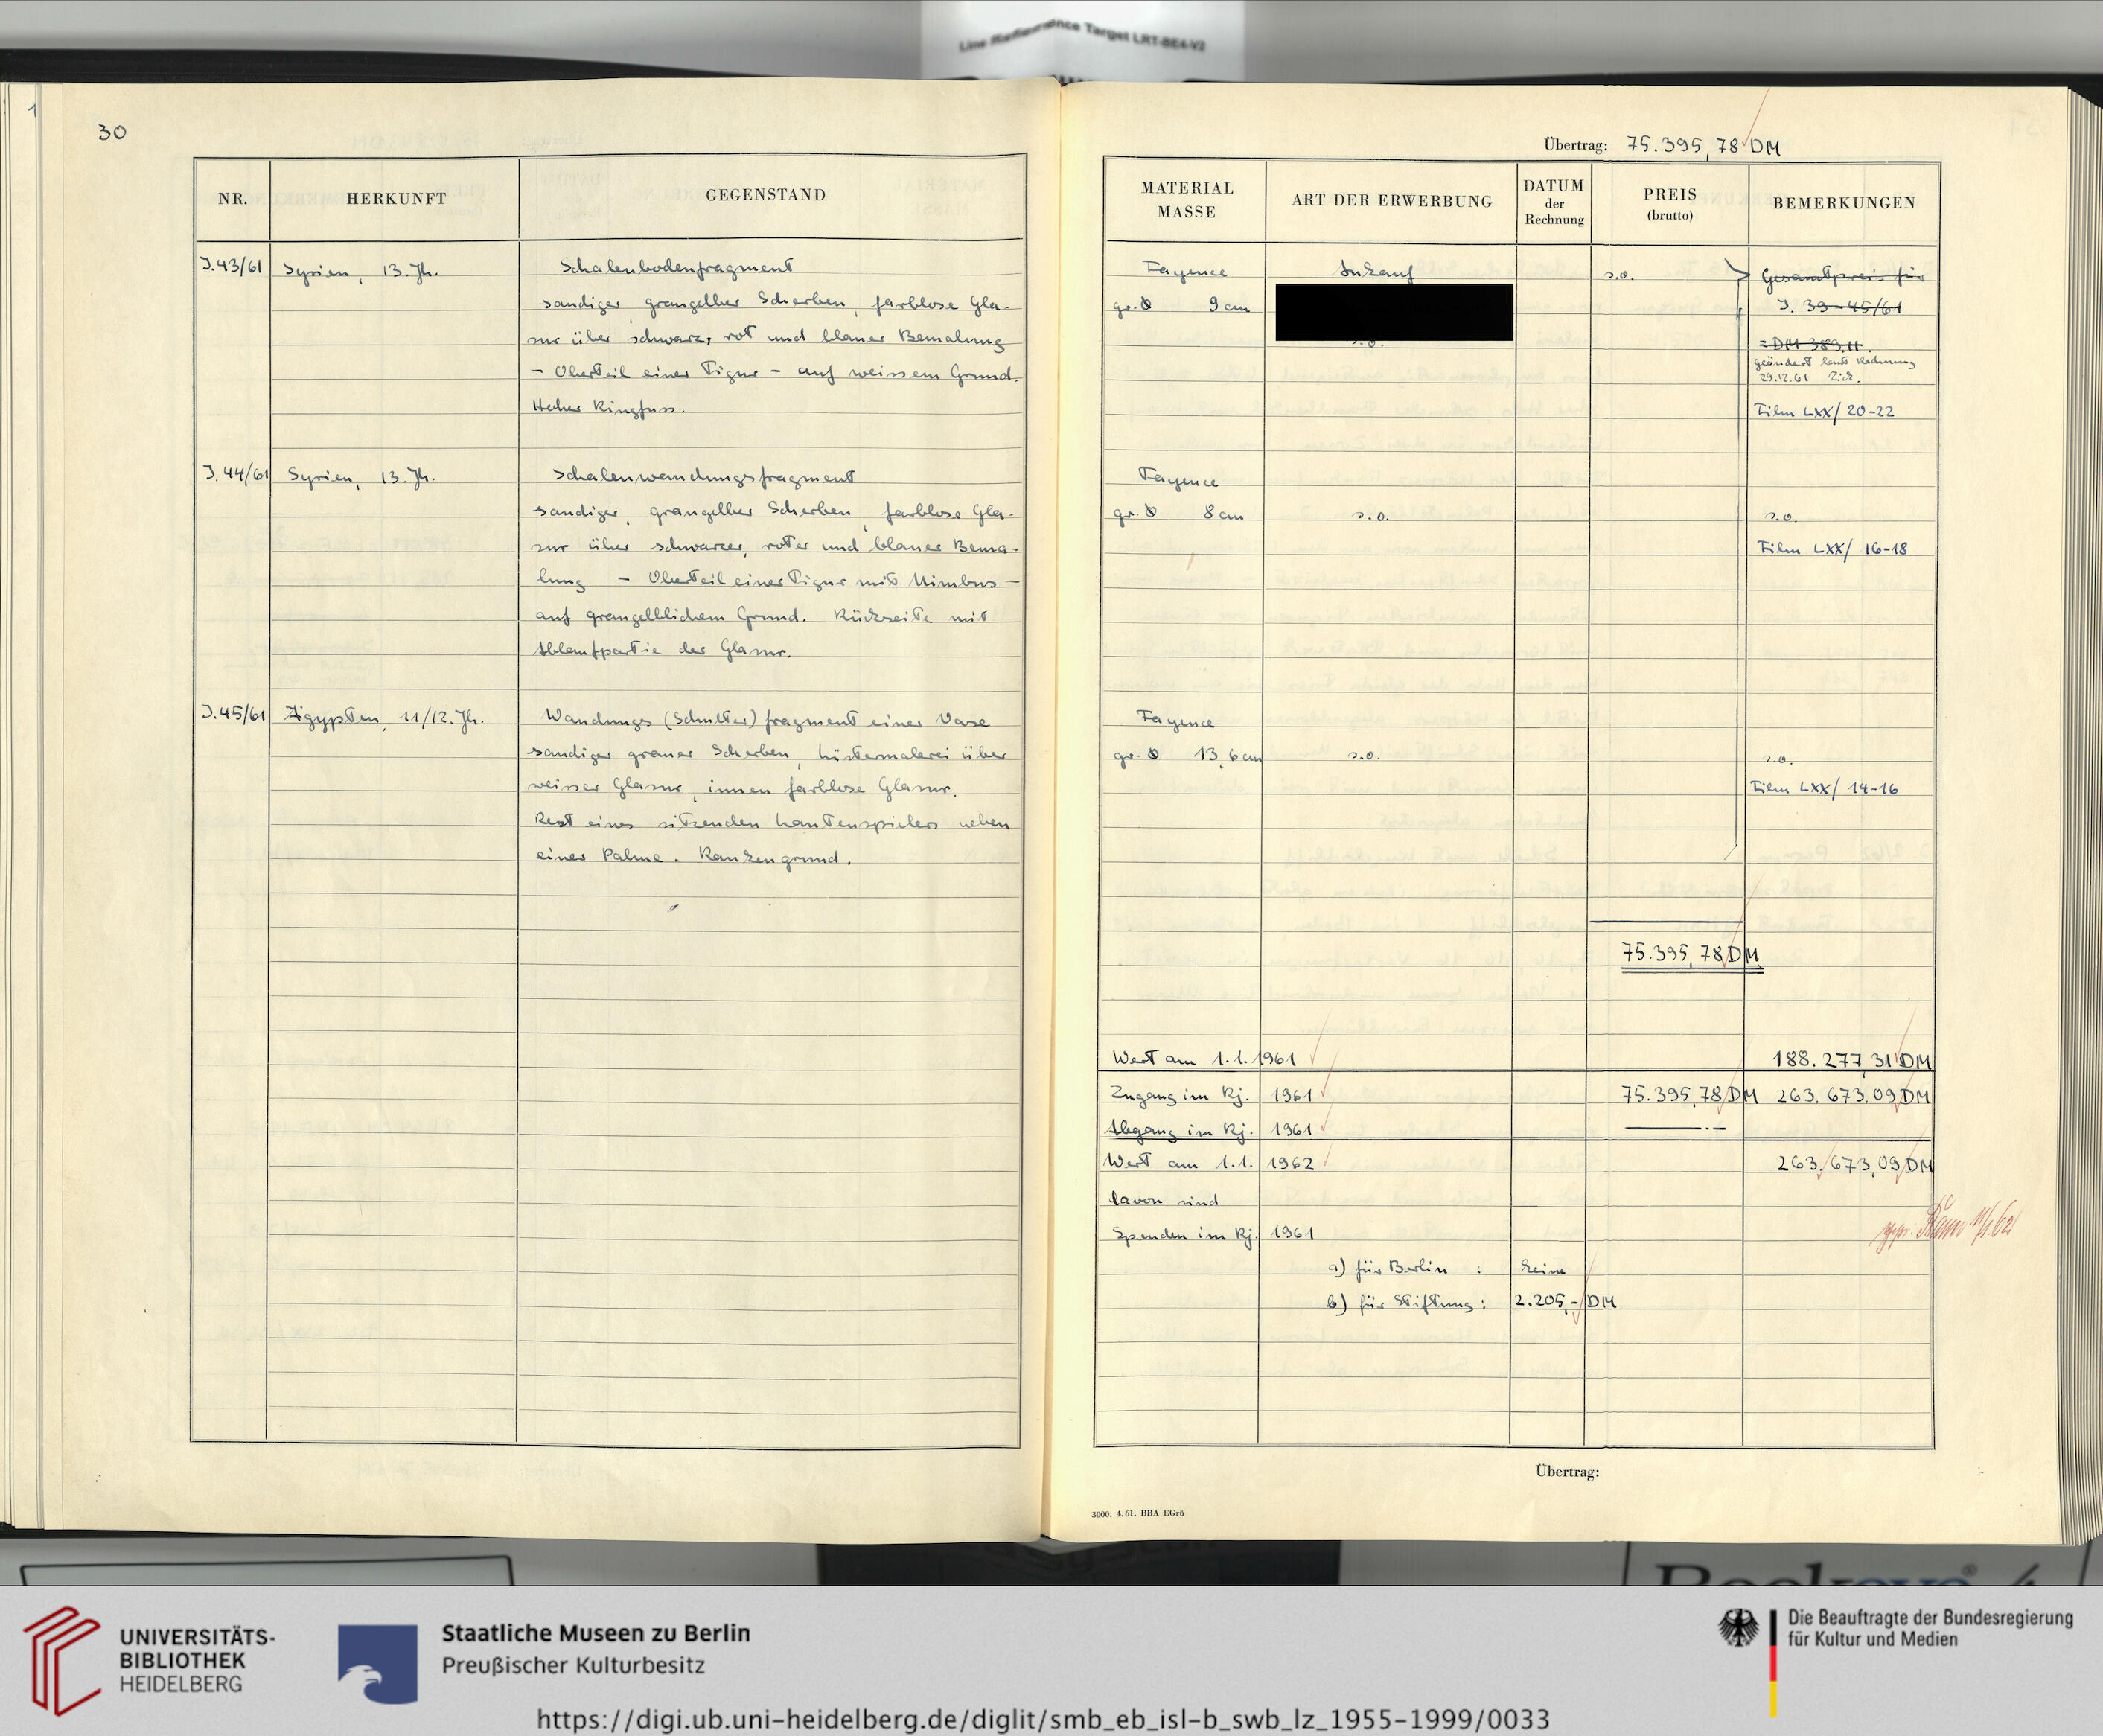 Line Reference Target LRT-BE4-V2
1
30
NR.
HERKUNFT
GEGENSTAND
J.43/61
Syrien, 13. Jh.
Schalenbodenfragment
sandiger, graugelber Scherben, farblose Gla-
sur über schwarz, rot und blauer Bemalung
- Oberteil einer Figur - auf weissem Grund.
Hoher Ringfuss.
J.44/61
Syrien, 13. Jh.
Schalenwandungsfragment
sandiger, graugelber Scherben, farblose Gla-
sur über schwarzer, roter und blauer Bema-
lung - Oberteil einer Figur mit Nimbus -
auf graugelblichem Grund. Rückseite mit
Ablaufpartie der Glasur.
J.45/61
Ägypten, 11/12. Jh.
Wandungs (Schulter) fragment einer Vase
sandiger grauer Scherben, Lüstermalerei über
weisser Glasur, innen farblose Glasur.
Rest eines sitzenden Lautenspielers neben
einer Palme. Rankengrund.
Übertrag: 75.395,78 DM
MATERIAL
MASSE
ART DER ERWERBUNG
DATUM
der
Rechnung
PREIS
(brutto)
BEMERKUNGEN
Fayence
gr. Ø 9 cm
Ankauf
s.o.
s.o.
Gesamtpreis für
J. 39-45/61
= DM 383,11.
geändert laut Rechnung
29.12.61
Film LXX/ 20-22
Fayence
gr. Ø 8 cm
s.o.
s.o.
Film LXX/ 16-18
Fayence
gr. Ø 13,6 cm
s.o.
s.o.
Film LXX/ 14-16
75.395,78 DM
Wert am 1.1.1961 188.277,31 DM
Zugang im Rj. 1961 75.395,78 DM 263.673,09 DM
Abgang im Rj. 1961 —.—
Wert am 1.1. 1962 263.673,09 DM
davon sind
Spenden im Rj. 1961
a) für Berlin : keine
b) für Stiftung: 2.205,- DM
Übertrag:
3000. 4.61. BBA EGrü
UNIVERSITÄTS-
BIBLIOTHEK
HEIDELBERG
Staatliche Museen zu Berlin
Preußischer Kulturbesitz
Die Beauftragte der Bundesregierung
für Kultur und Medien
https://digi.ub.uni-heidelberg.de/diglit/smb_eb_isl-b_swb_lz_1955-1999/0033